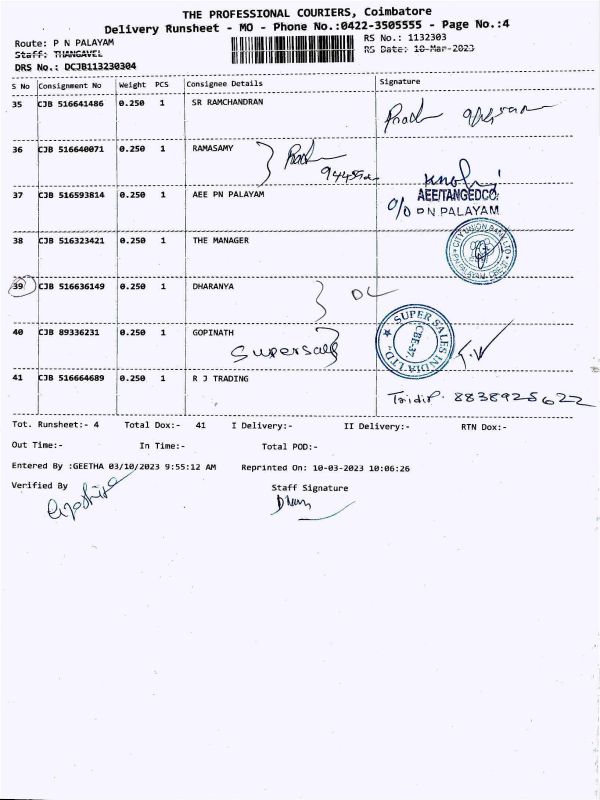 THE PROFESSIONAL COURIERS, Coimbatore
Delivery Runsheet - MO - Phone No.:0422-3505555 - Page No.:4
Route: P N PALAYAM
RS No.: 1132303
Staff: THANGAVEL
RS Date: 10-Mar-2023
DRS No.: DCJB113230304
S No Consignment No Weight PCS Consignee Details Signature
35 CJB 516641486 0.250 1 SR RAMCHANDRAN
36 CJB 516640071 0.250 1 RAMASAMY
37 CJB 516593814 0.250 1 AEE PN PALAYAM
AEE/TANGEDCO
O/O P N PALAYAM
38 CJB 516323421 0.250 1 THE MANAGER
CITY UNION BANK LTD
39 CJB 516636149 0.250 1 DHARANYA
DL
40 CJB 89336231 0.250 1 GOPINATH
Supersales
SUPER SALES INDIA LTD
CBE-37.
T.V
41 CJB 516664689 0.250 1 R J TRADING
8838925622
Tot. Runsheet:- 4 Total Dox:- 41 I Delivery:- II Delivery:- RTN Dox:-
Out Time:- In Time:- Total POD:-
Entered By :GEETHA 03/10/2023 9:55:12 AM Reprinted On: 10-03-2023 10:06:26
Verified By
Staff Signature